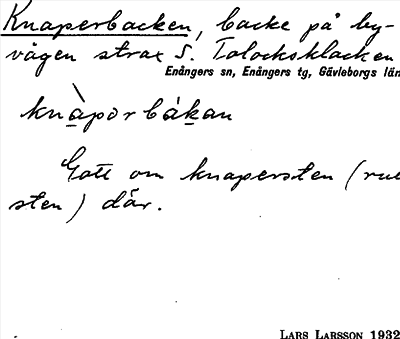 Knaperbacken, backe på by-
vägen strax S. Tolocksklacken
Enångers sn, Enångers tg, Gävleborgs län
knàpər bákan
Gott om knapersten (rue
sten) där.
LARS LARSSON 1932